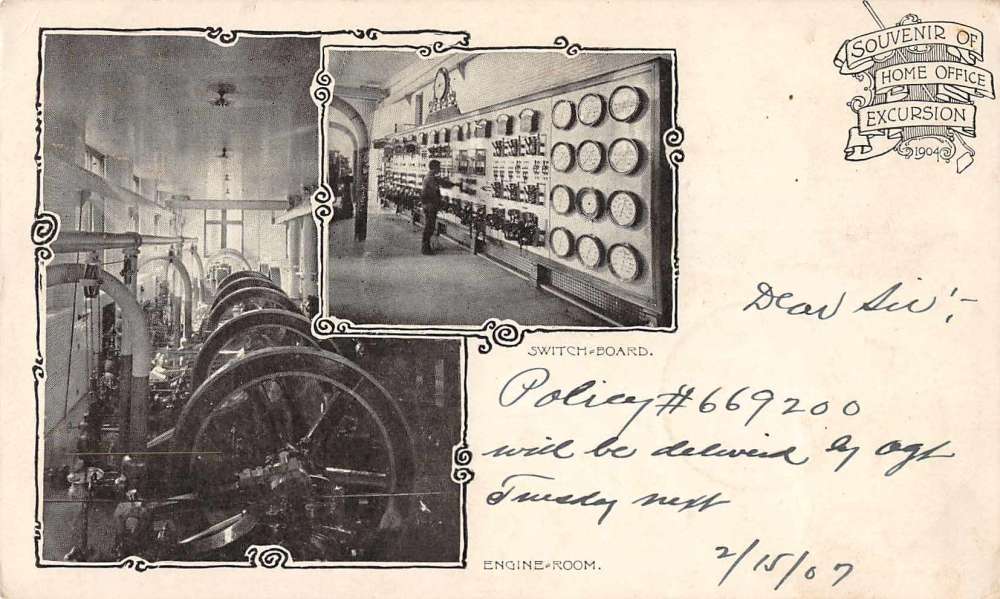 SOUVENIR OF
HOME OFFICE
EXCURSION
1904
SWITCH-BOARD.
Dear Sir:-
Policy #669200
will be delivered by agt
Tuesday next
2/15/07
ENGINE-ROOM.